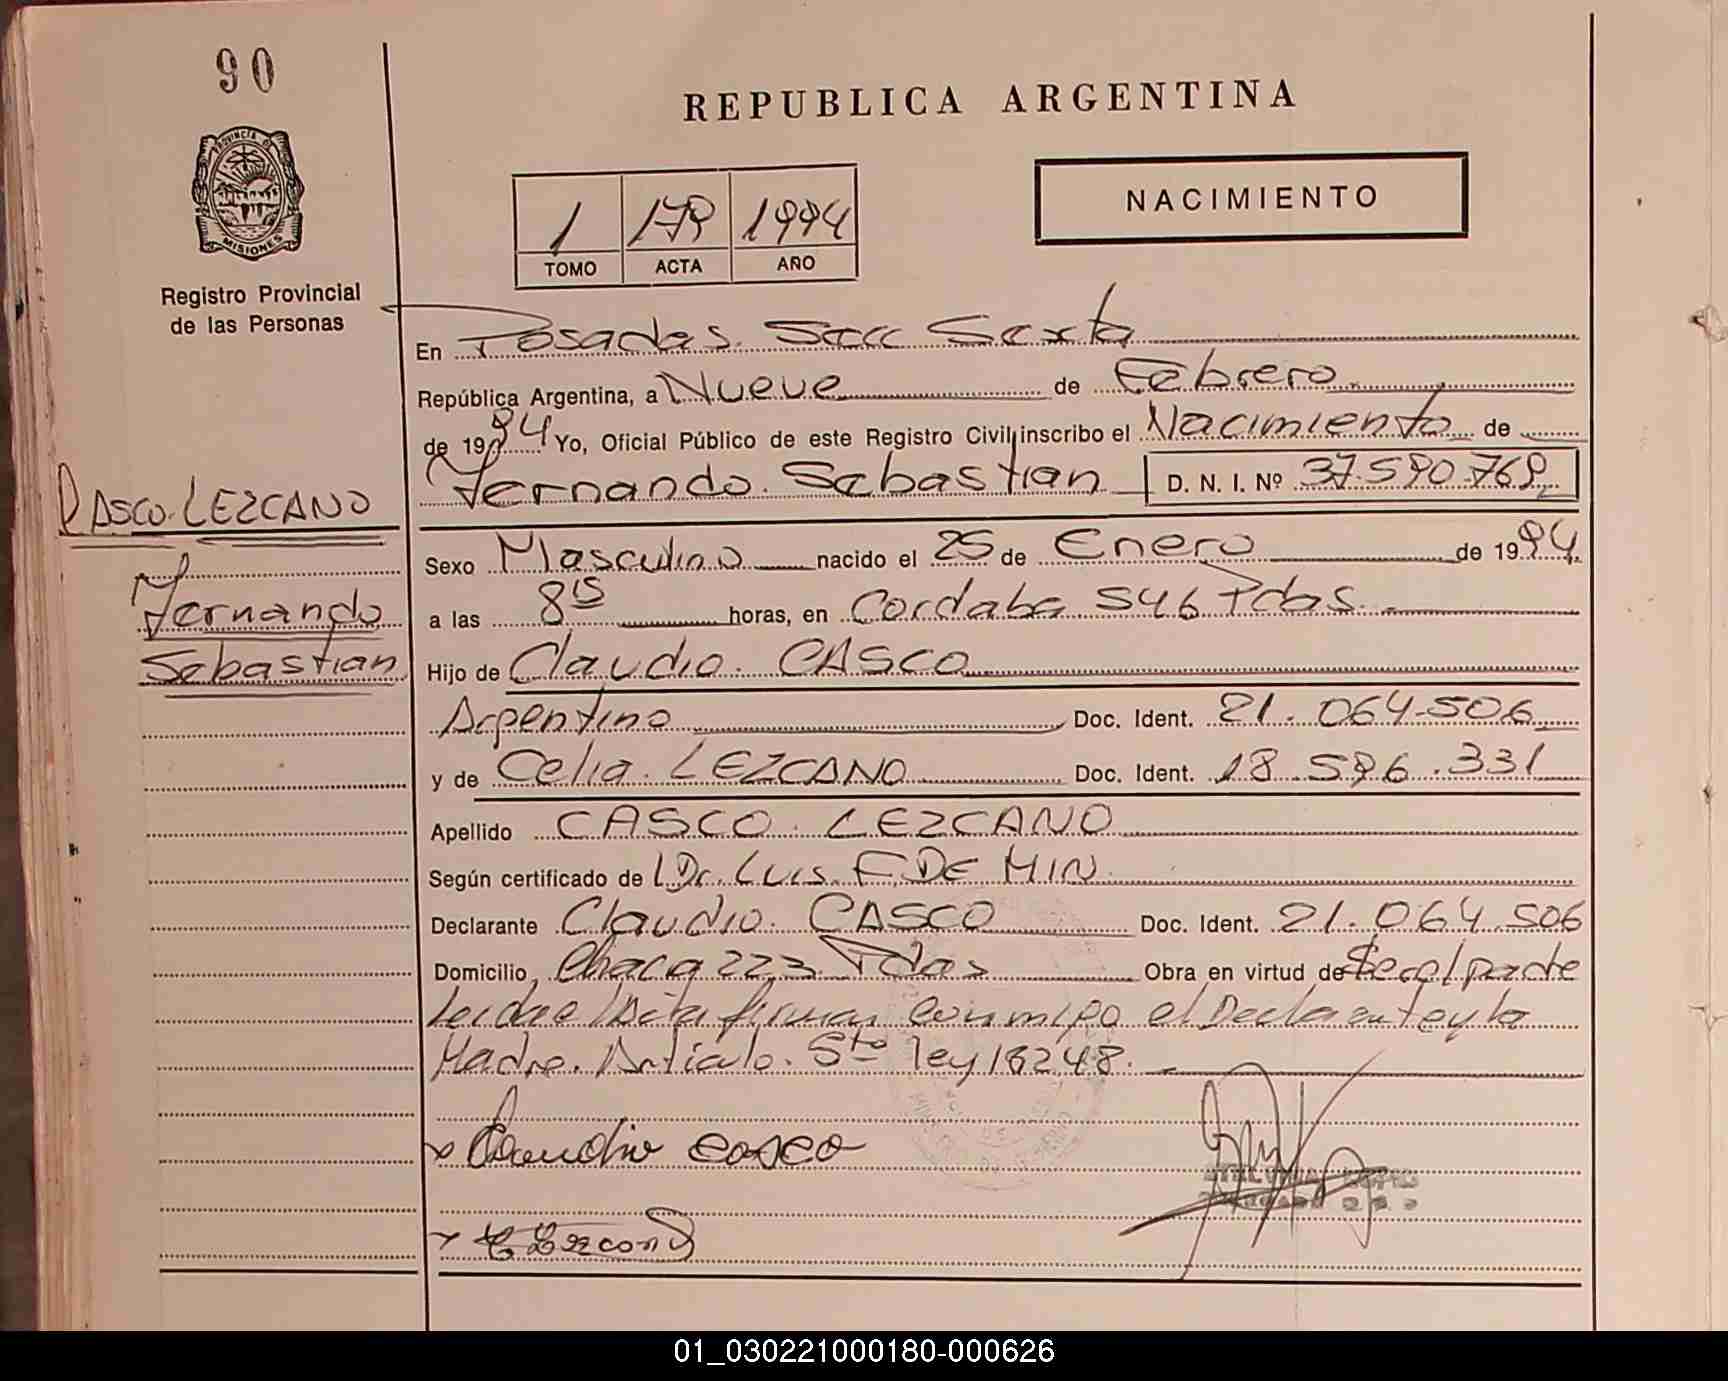 90
REPUBLICA ARGENTINA
PROVINCIA DE
MISIONES
Registro Provincial
de las Personas
1 179 1994
TOMO ACTA AÑO
NACIMIENTO
En Posadas Secc Sexta
República Argentina, a Nueve de Febrero
de 1994 Yo, Oficial Público de este Registro Civil inscribo el Nacimiento de
Fernando Sebastian D. N. I. Nº 37.590.769
CASCO LEZCANO
Fernando
Sebastian
Sexo Masculino nacido el 25 de Enero de 1994.
a las 8 15 horas, en Cordoba 546 Pdas.
Hijo de Claudio CASCO
Argentino Doc. Ident. 21.064.506
y de Celia LEZCANO Doc. Ident. 18.596.331
Apellido CASCO LEZCANO
Según certificado de Dr. Luis F. DE MIN
Declarante Claudio CASCO Doc. Ident. 21.064.506
Domicilio Chaca 223 Pdas Obra en virtud de
Leida el Acta firman conmigo el Declarante y la
Madre. Articulo 5to ley 18248.
x Claudio casco
x C Lezcano
01_030221000180-000626